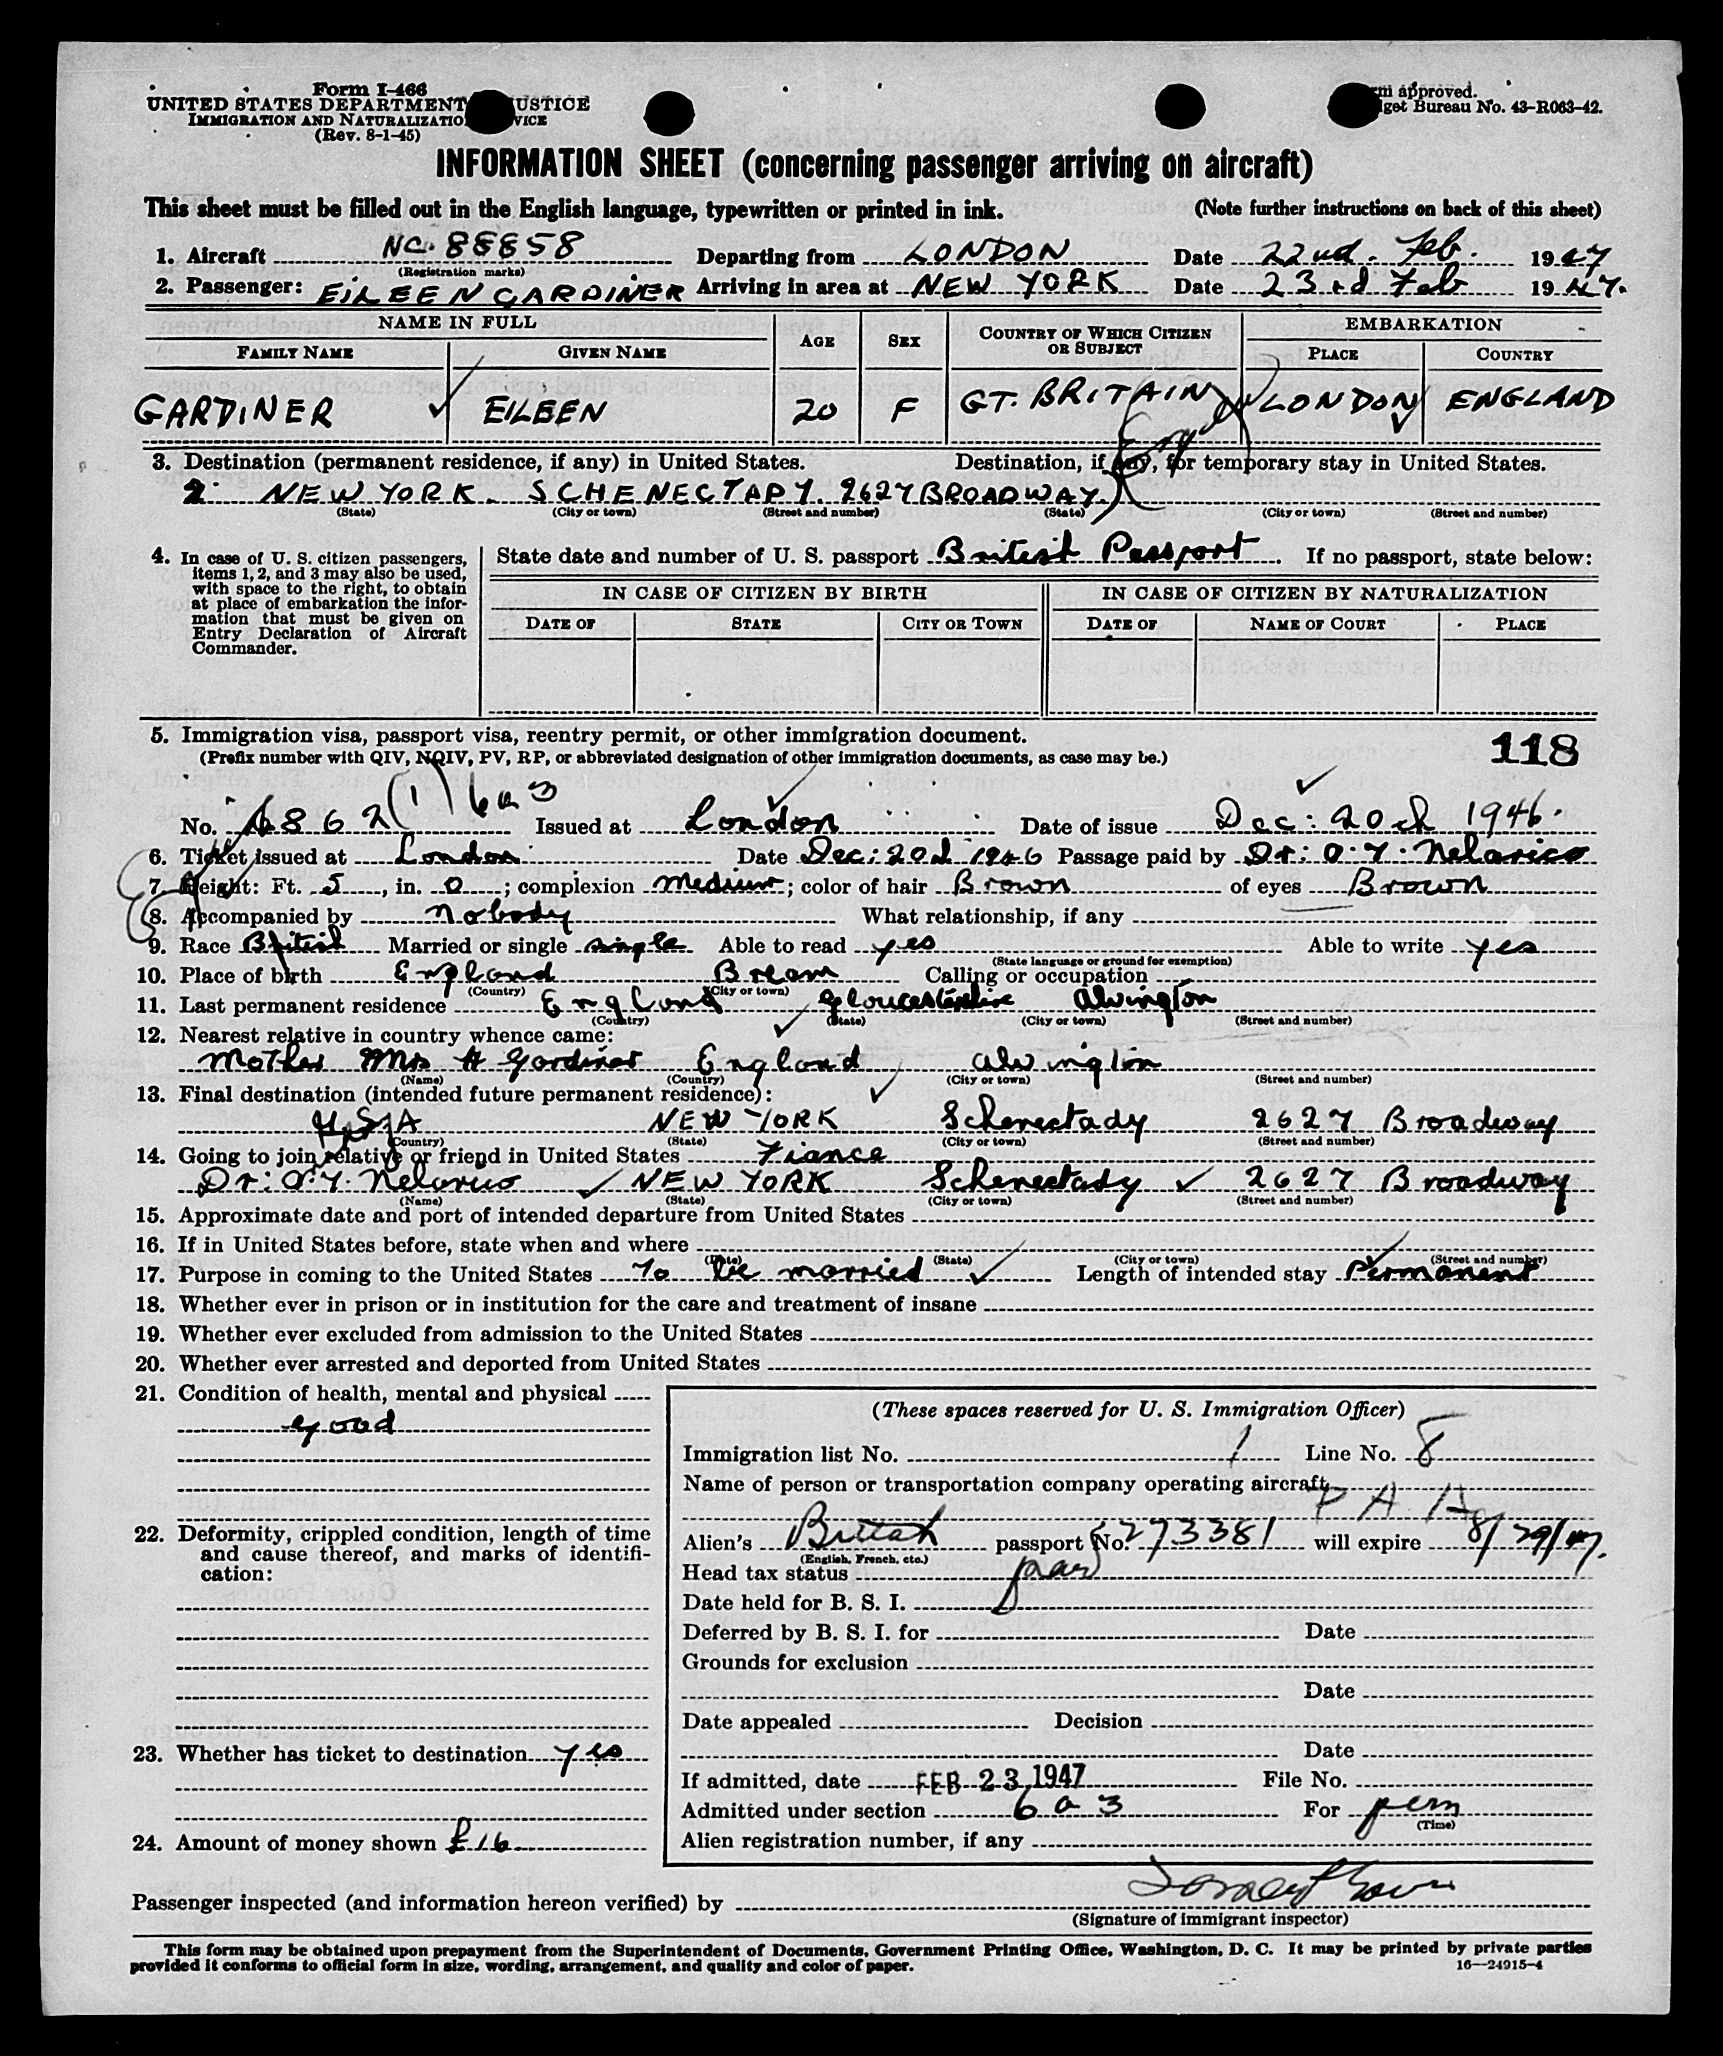 Form I-466
UNITED STATES DEPARTMENT JUSTICE
IMMIGRATION AND NATURALIZATION SERVICE
(Rev. 8-1-45)
Form approved.
Budget Bureau No. 43-R063-42.
INFORMATION SHEET (concerning passenger arriving on aircraft)
This sheet must be filled out in the English language, typewritten or printed in ink. (Note further instructions on back of this sheet)
1. Aircraft NC. 88858 Departing from LONDON Date 22nd. Feb. 1947
(Registration marks)
2. Passenger: EILEEN GARDINER Arriving in area at NEW YORK Date 23rd Feb 1947.
NAME IN FULL AGE SEX COUNTRY OF WHICH CITIZEN OR SUBJECT EMBARKATION
FAMILY NAME GIVEN NAME PLACE COUNTRY
GARDINER EILEEN 20 F GT. BRITAIN LONDON ENGLAND
3. Destination (permanent residence, if any) in United States. Destination, if any, for temporary stay in United States.
NEW YORK. SCHENECTADY. 2627 BROADWAY.
(State) (City or town) (Street and number) (State) (City or town) (Street and number)
4. In case of U. S. citizen passengers, items 1, 2, and 3 may also be used, with space to the right, to obtain at place of embarkation the information that must be given on Entry Declaration of Aircraft Commander.
State date and number of U. S. passport British Passport. If no passport, state below:
IN CASE OF CITIZEN BY BIRTH IN CASE OF CITIZEN BY NATURALIZATION
DATE OF STATE CITY OR TOWN DATE OF NAME OF COURT PLACE
5. Immigration visa, passport visa, reentry permit, or other immigration document.
(Prefix number with QIV, NQIV, PV, RP, or abbreviated designation of other immigration documents, as case may be.)
118
No. 4862 (1) 6a3 Issued at London Date of issue Dec: 20th 1946.
6. Ticket issued at London Date Dec: 20th 1946 Passage paid by Dr: O.Y. Nelarico
7. Height: Ft. 5, in. 0; complexion Medium; color of hair Brown of eyes Brown
8. Accompanied by Nobody What relationship, if any
9. Race British Married or single single Able to read yes Able to write yes
(State language or ground for exemption)
10. Place of birth England Bream Calling or occupation
(Country) (City or town)
11. Last permanent residence England Gloucestershire Alvington
(Country) (State) (City or town) (Street and number)
12. Nearest relative in country whence came:
Mother Mrs H Gardiner England Alvington
(Name) (Country) (City or town) (Street and number)
13. Final destination (intended future permanent residence):
U.S.A NEW YORK Schenectady 2627 Broadway
(Country) (State) (City or town) (Street and number)
14. Going to join relative or friend in United States Fiance
Dr: O.Y. Nelarico NEW YORK Schenectady 2627 Broadway
(Name) (State) (City or town) (Street and number)
15. Approximate date and port of intended departure from United States
16. If in United States before, state when and where
(Date) (State) (City or town) (Street and number)
17. Purpose in coming to the United States To be married Length of intended stay Permanent
18. Whether ever in prison or in institution for the care and treatment of insane
19. Whether ever excluded from admission to the United States
20. Whether ever arrested and deported from United States
21. Condition of health, mental and physical
good
22. Deformity, crippled condition, length of time and cause thereof, and marks of identification:
23. Whether has ticket to destination yes
24. Amount of money shown £16
(These spaces reserved for U. S. Immigration Officer)
Immigration list No. 1 Line No. 8
Name of person or transportation company operating aircraft
P A A
Alien's British passport No. 273381 will expire 8/29/47.
(English, French, etc.)
Head tax status
Date held for B. S. I.
Deferred by B. S. I. for Date
Grounds for exclusion
Date
Date appealed Decision
Date
If admitted, date FEB 23 1947 File No.
Admitted under section 6a3 For perm
(Time)
Alien registration number, if any
Passenger inspected (and information hereon verified) by
(Signature of immigrant inspector)
This form may be obtained upon prepayment from the Superintendent of Documents, Government Printing Office, Washington, D. C. It may be printed by private parties
provided it conforms to official form in size, wording, arrangement, and quality and color of paper.
16—24915-4